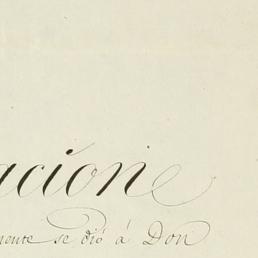 acione
mente se dió á Don